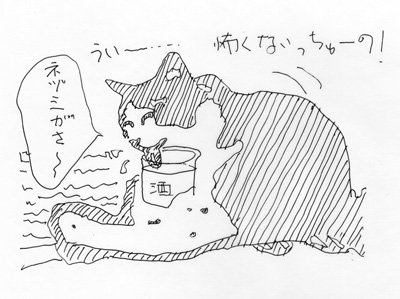 うぃー……
怖くないっちゅーの!
ネヅミがさ〜
酒